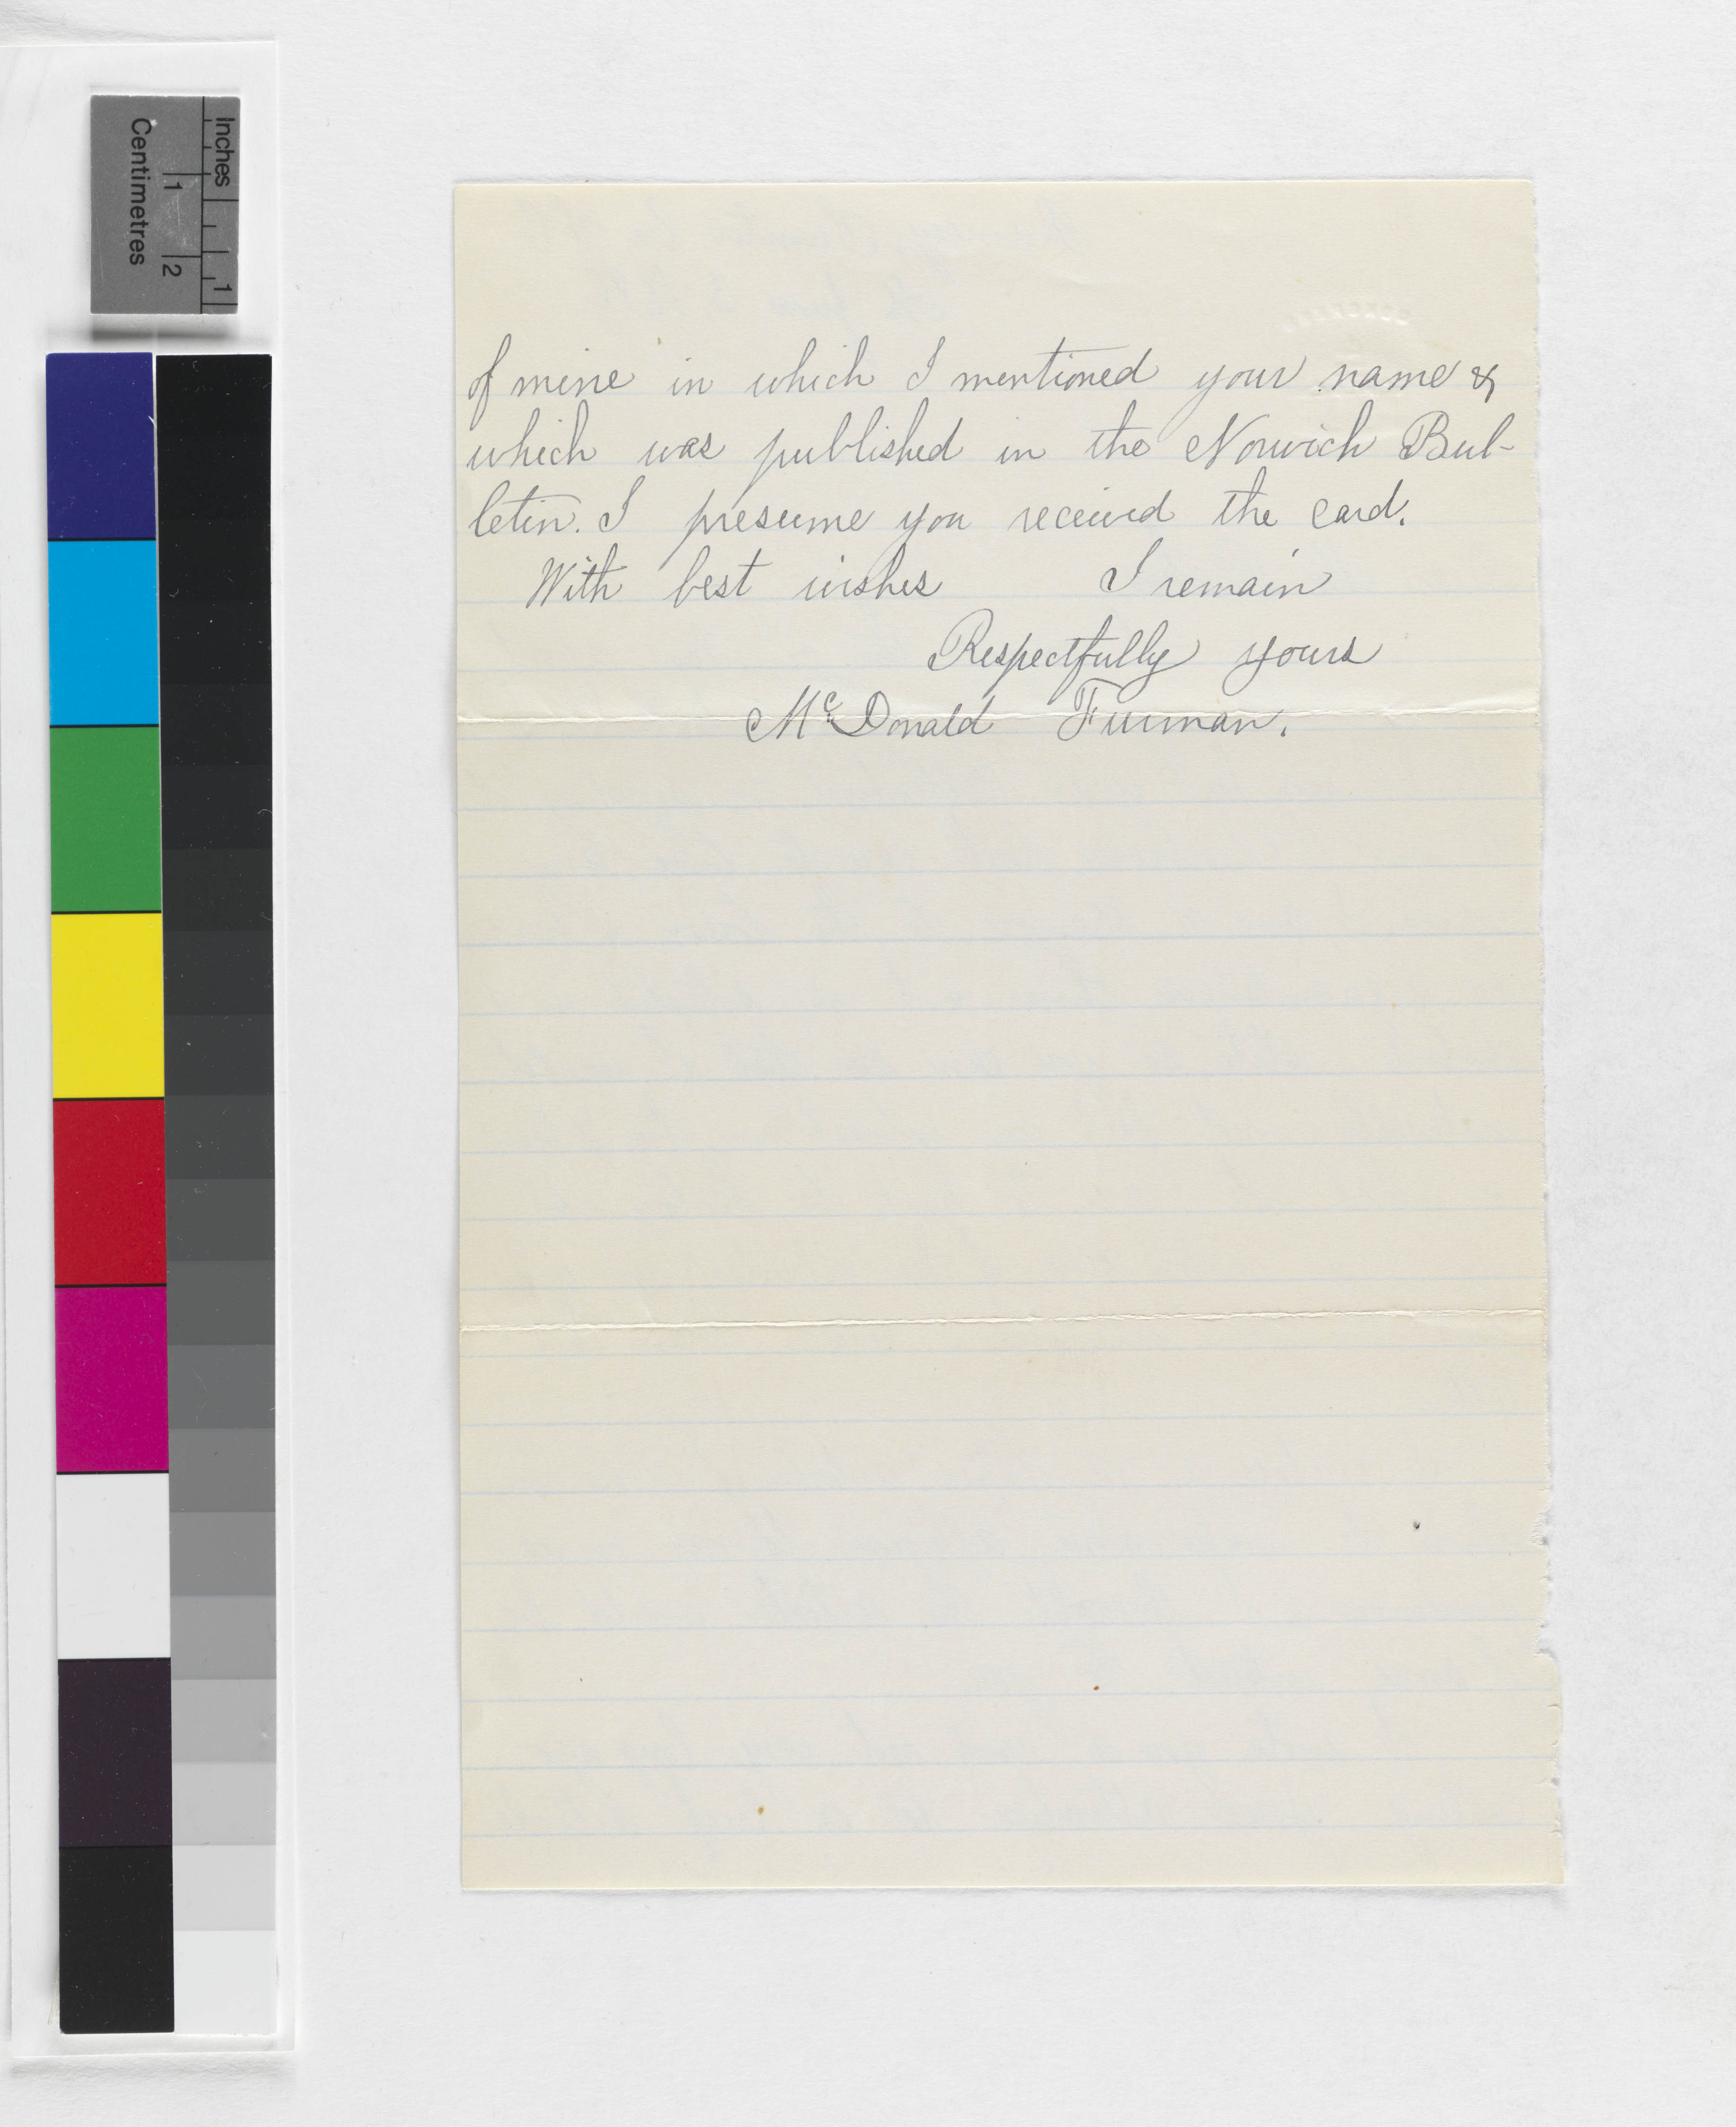 Inches
1
Centimetres
1
2
of mine in which I mentioned your name &
which was published in the Norwich Bul-
letin. I presume you received the card.
With best wishes I remain
Respectfully yours
McDonald Furman.